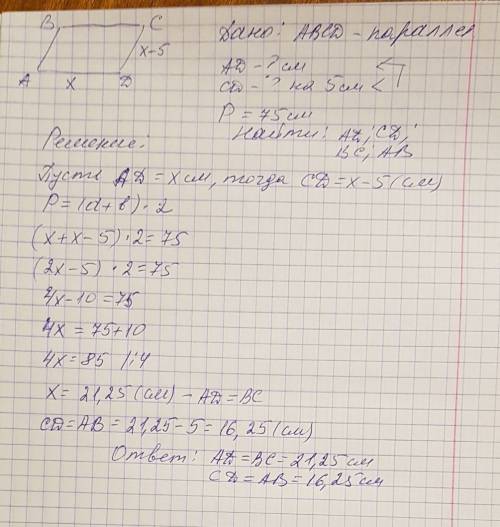 B C
Дано: ABCD - параллел
x-5
A x D
AD - ? см
CD - ? на 5 см <
P = 75 см
Найти: AD; CD;
BC; AB
Решение:
Пусть AD = x см, тогда CD = x-5 (см)
P = (a+b)·2
(x+x-5)·2=75
(2x-5)·2=75
4x-10=75
4x = 75+10
4x = 85 |:4
x = 21,25 (см) - AD = BC
CD = AB = 21,25-5 = 16,25 (см)
Ответ: AD = BC = 21,25 см
CD = AB = 16,25 см